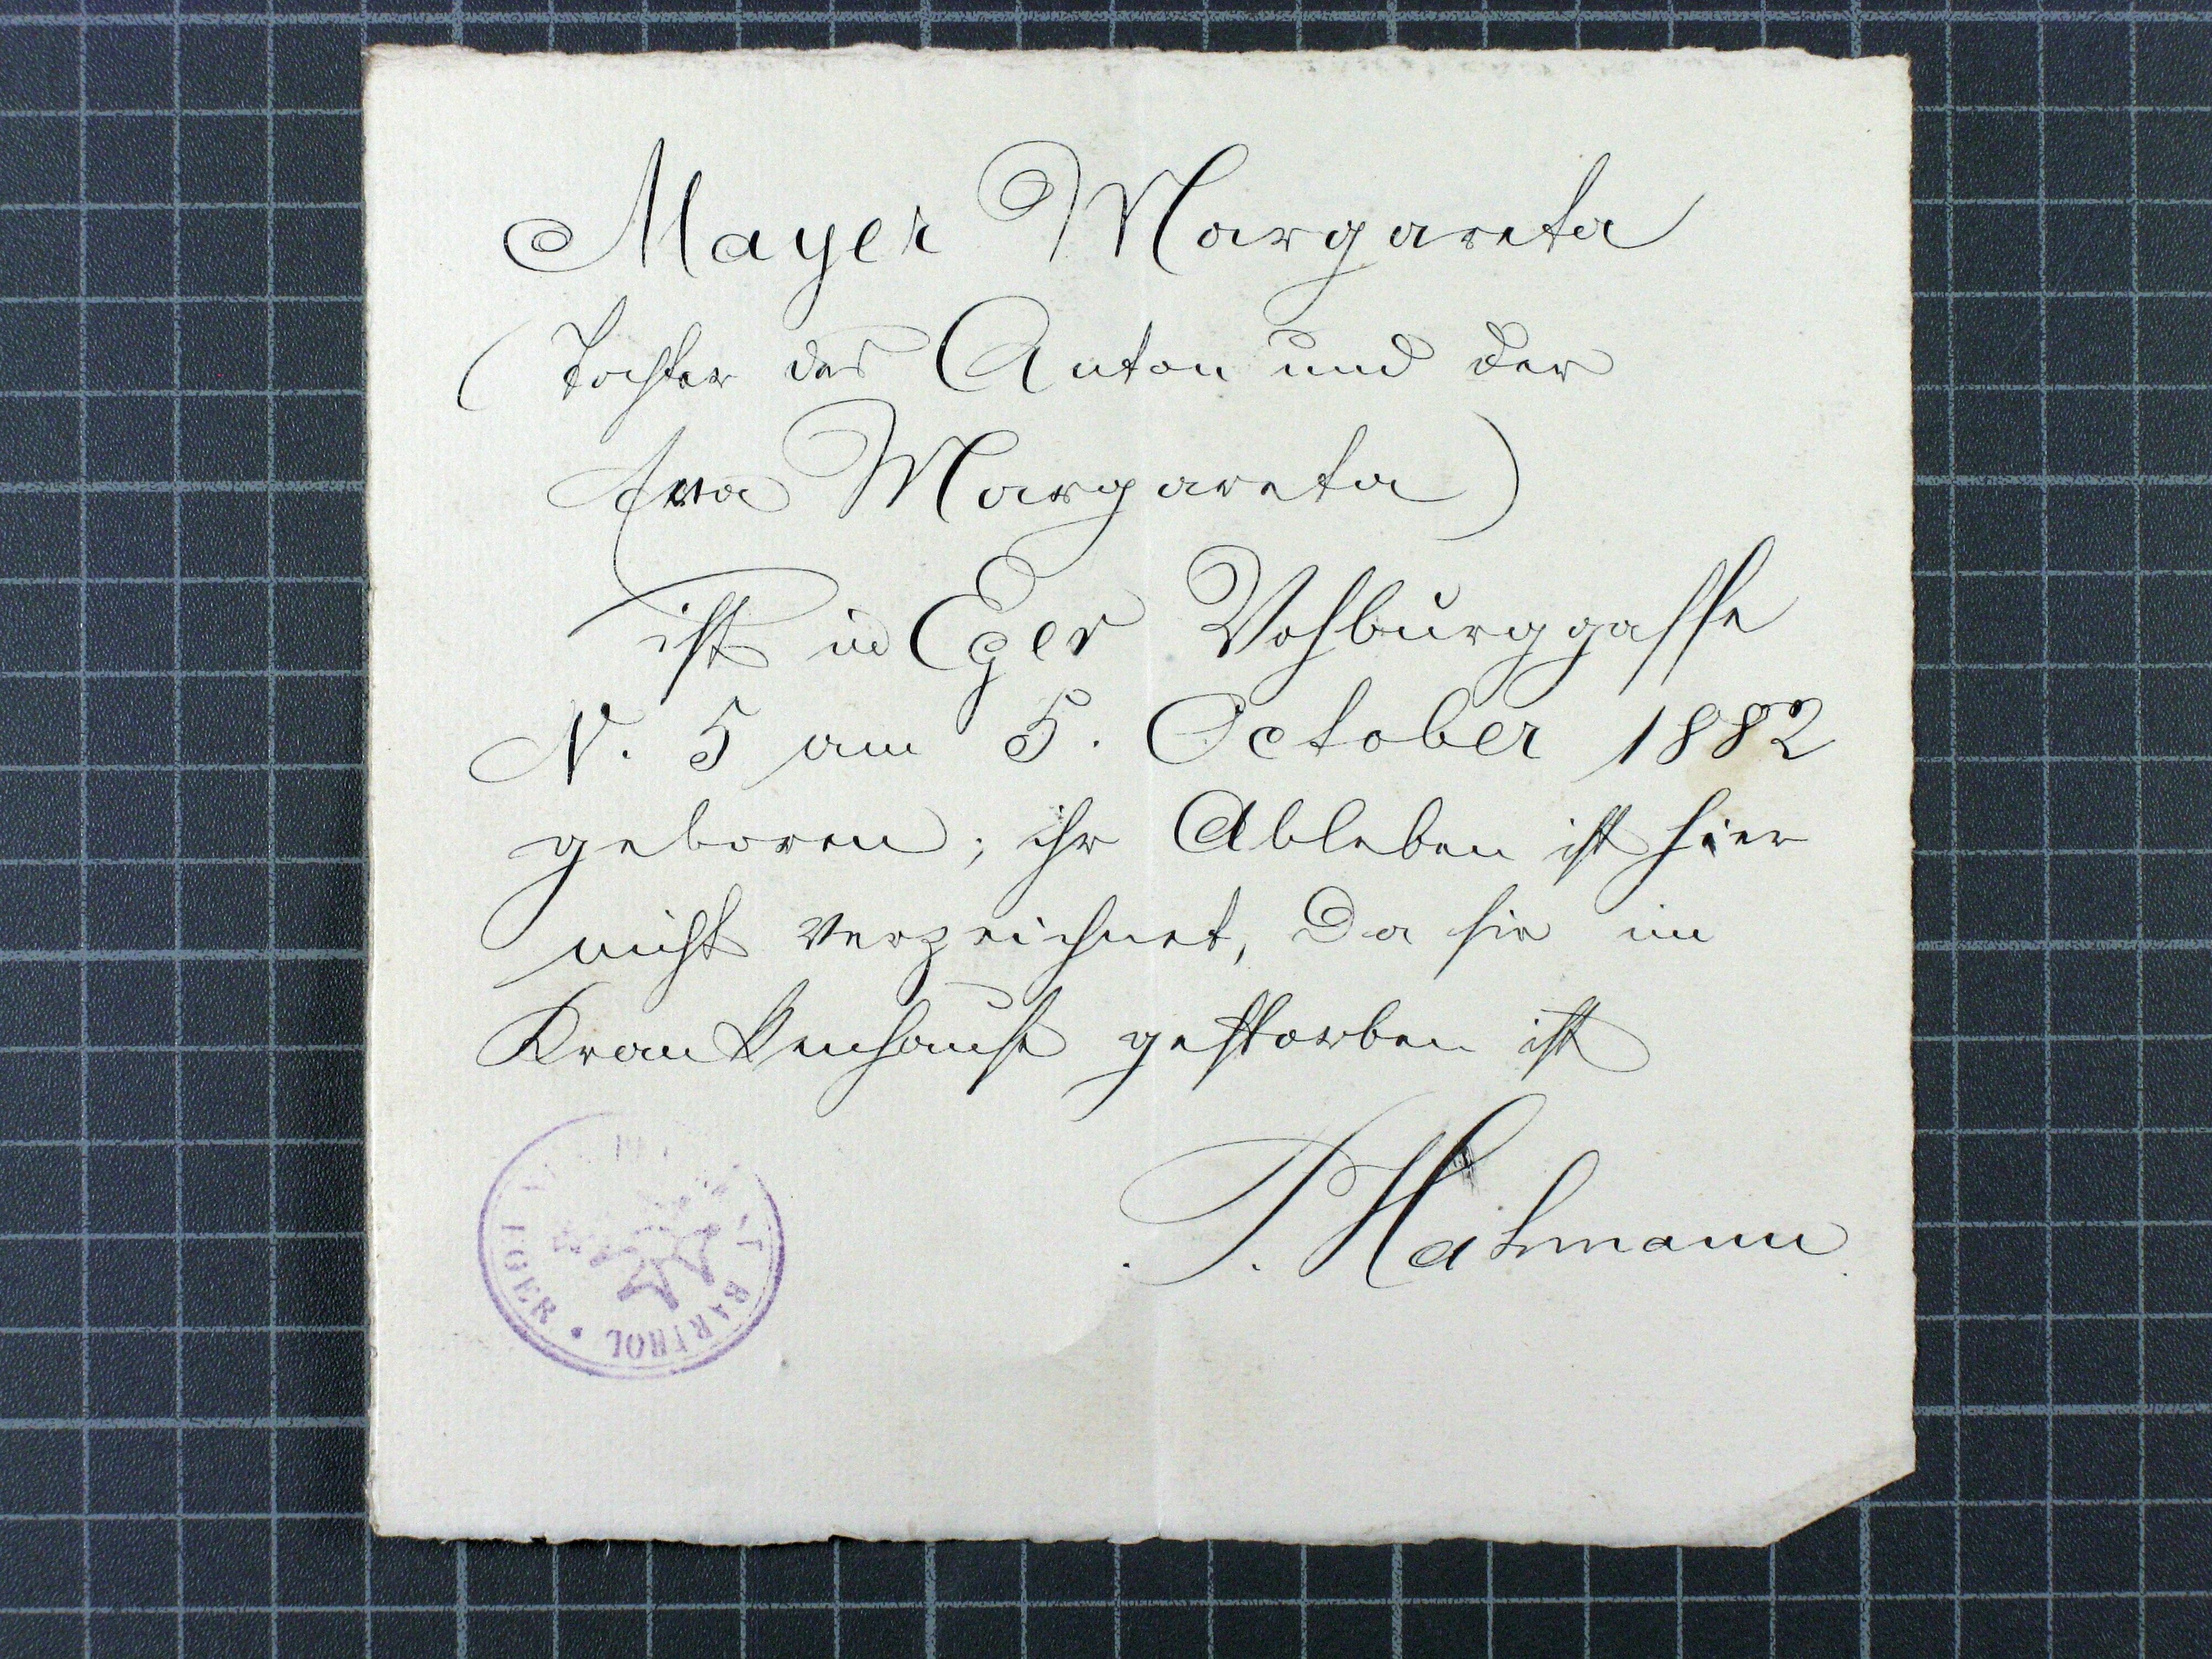 Mayer Margareta
(Tochter des Anton und der
Eva Margareta)
ist in Eger Vohburggasse
N. 5 am 5. October 1882
geboren; ihr Ableben ist hier
nicht verzeichnet, da sie im
Krankenhause gestorben ist
P. Hahmann
BARTHOL
EGER